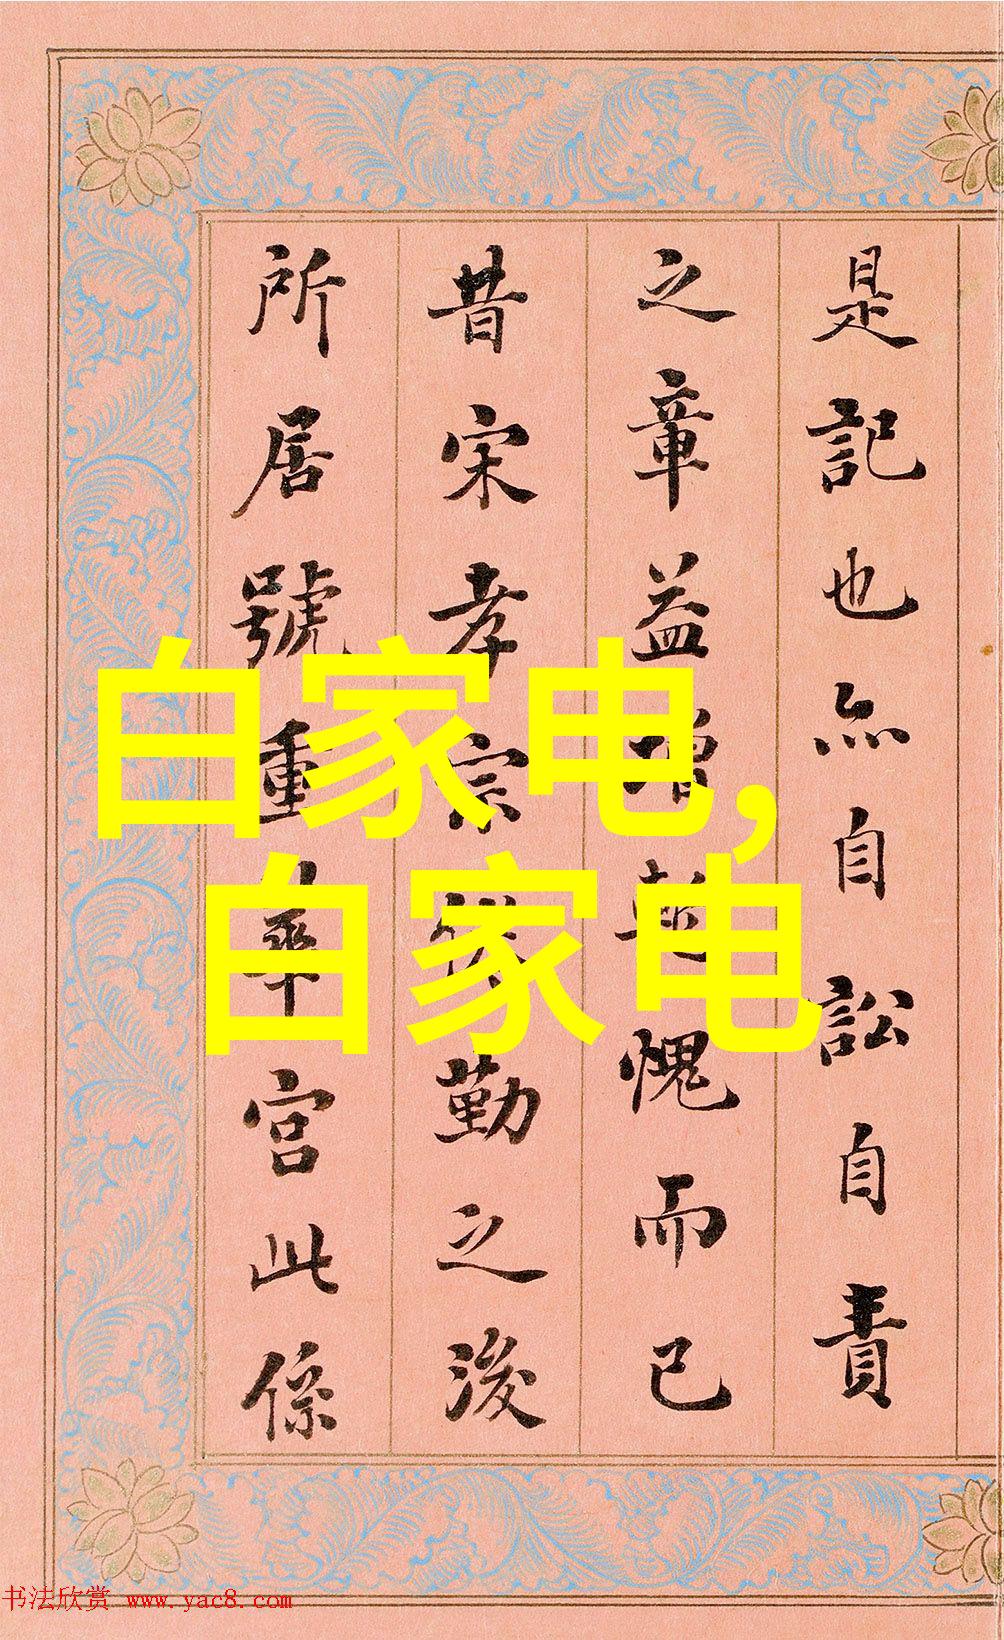 是記也亦自訟自責
之章益增慙愧而已
昔宋孝宗倦勤之後
所居號重華宮此係
白家电,
白家电
书法欣赏 www.yac8.com